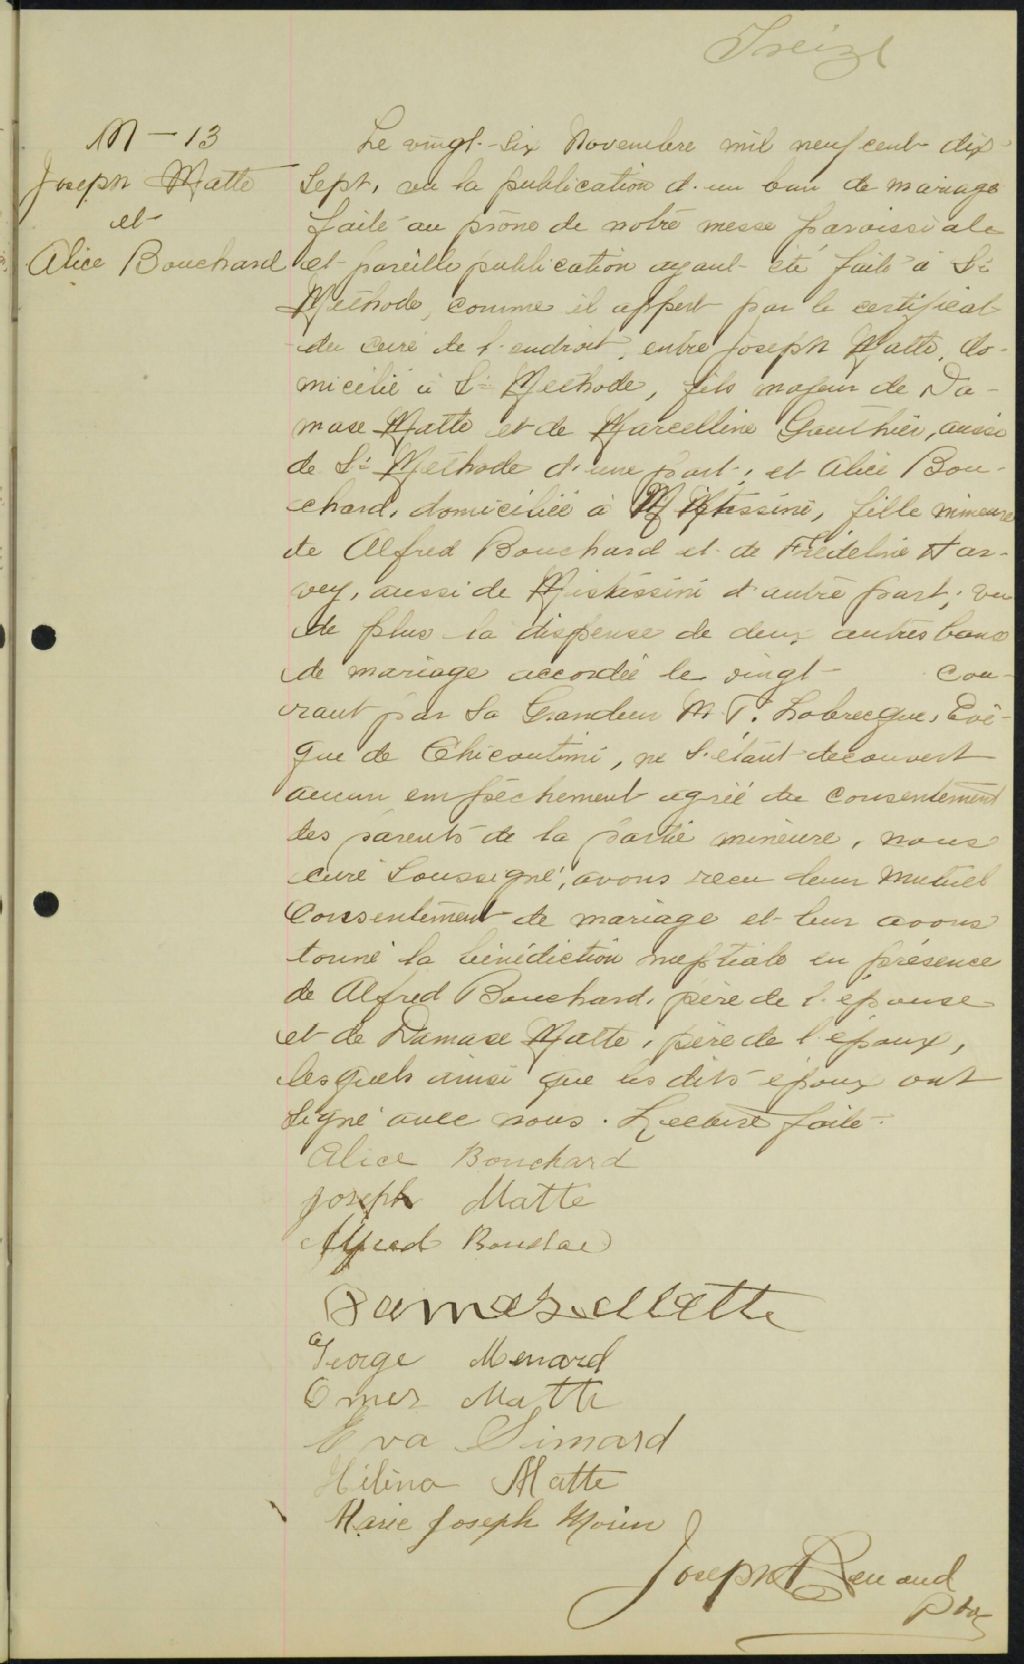 Treize
M - 13
Joseph Matte
et
Alice Bouchard
Le vingt-six Novembre mil neuf cent dix
sept, vu la publication d'un ban de mariage
faite au prône de notre messe paroissiale
et pareille publication ayant été faite à St
Méthode, comme il appert par le certificat
du curé de l'endroit, entre Joseph Matte, do-
micilié à St Méthode, fils majeur de Da-
mase Matte et de Marcelline Gauthier, aussi
de St Méthode d'une part; et Alice Bou-
chard, domiciliée à Mistassini, fille mineure
de Alfred Bouchard et de Fredeline Har-
vey, aussi de Mistassini d'autre part; vu
de plus la dispense de deux autres bans
de mariage accordée le vingt cou-
rant par Sa Grandeur M. T. Labrecque, Evê-
que de Chicoutimi, ne s'étant decouvert
aucun empêchement agréé du consentement
des parents de la partie mineure, nous
curé soussigné, avons recu leur mutuel
consentement de mariage et leur avons
donné la bénédiction nuptiale en présence
de Alfred Bouchard, père de l'épouse
et de Damase Matte, père de l'époux,
lesquels ainsi que les dits époux ont
signé avec nous. Lecture faite.
Alice Bouchard
Joseph Matte
Alfred
Damase Matte
George Menard
Omer Matte
Eva Simard
Hélina Matte
Marie Joseph Morin
Joseph Renaud
Ptre